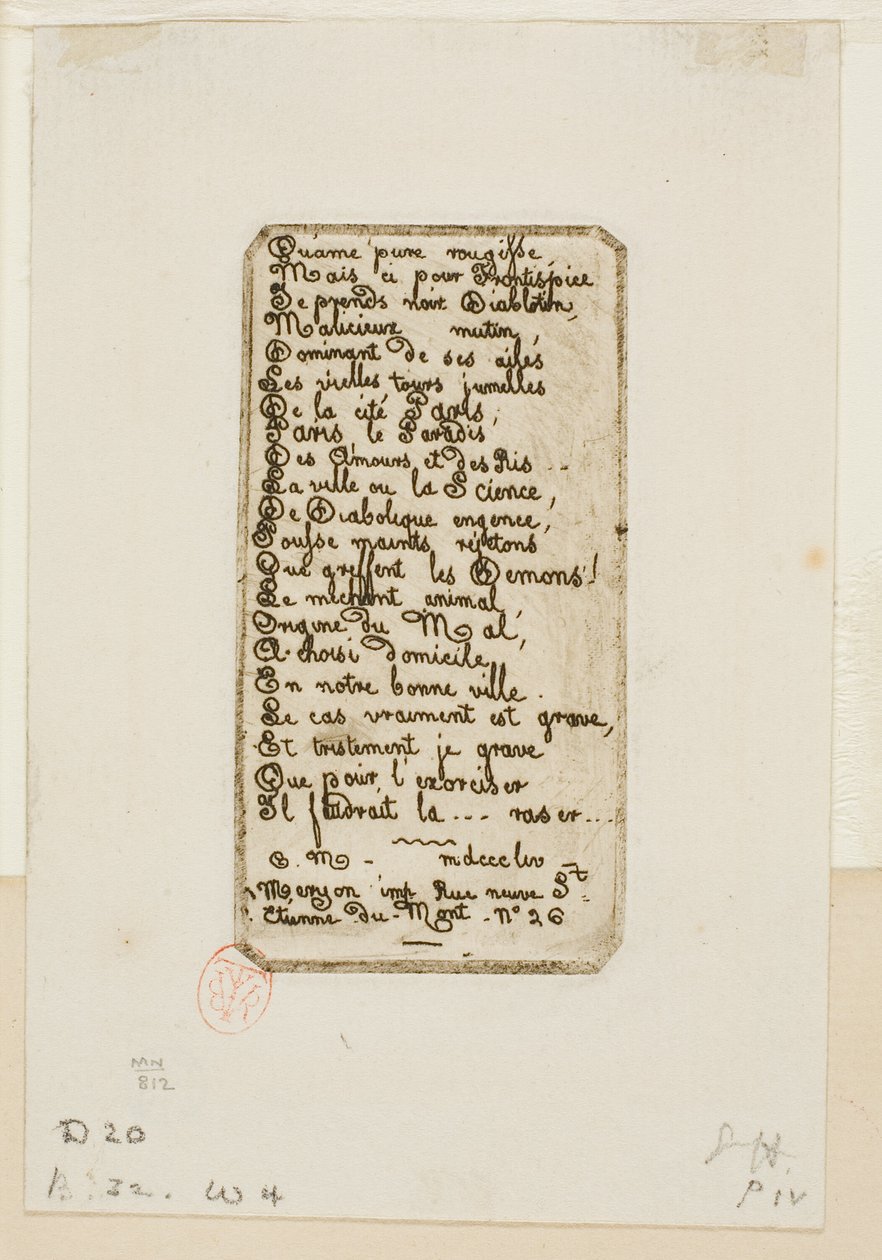 Qu'âme pure rougisse,
Mais ci pour Frontispice
Je prends noir Diablotin,
Malicieux mutin,
Dominant de ses ailes
Les vielles tours jumelles
De la cité Paris,
Paris le Paradis
Des Amours et des Ris ...
La ville ou la Science,
De Diabolique engence,
Pousse maints rejetons
Que greffent les Demons!
Le méchant animal,
Origine du Mal,
A choisi domicile
En notre bonne ville.
Le cas vraiment est grave,
Et tristement je grave
Que pour l'exorciser
Il faudrait la --- raser ...
C. M - mdcccliv -
Meryon imp Rue neuve St
Etienne-du-Mont - No 26
MN
812
D 20
B. 32. W 4
P IV